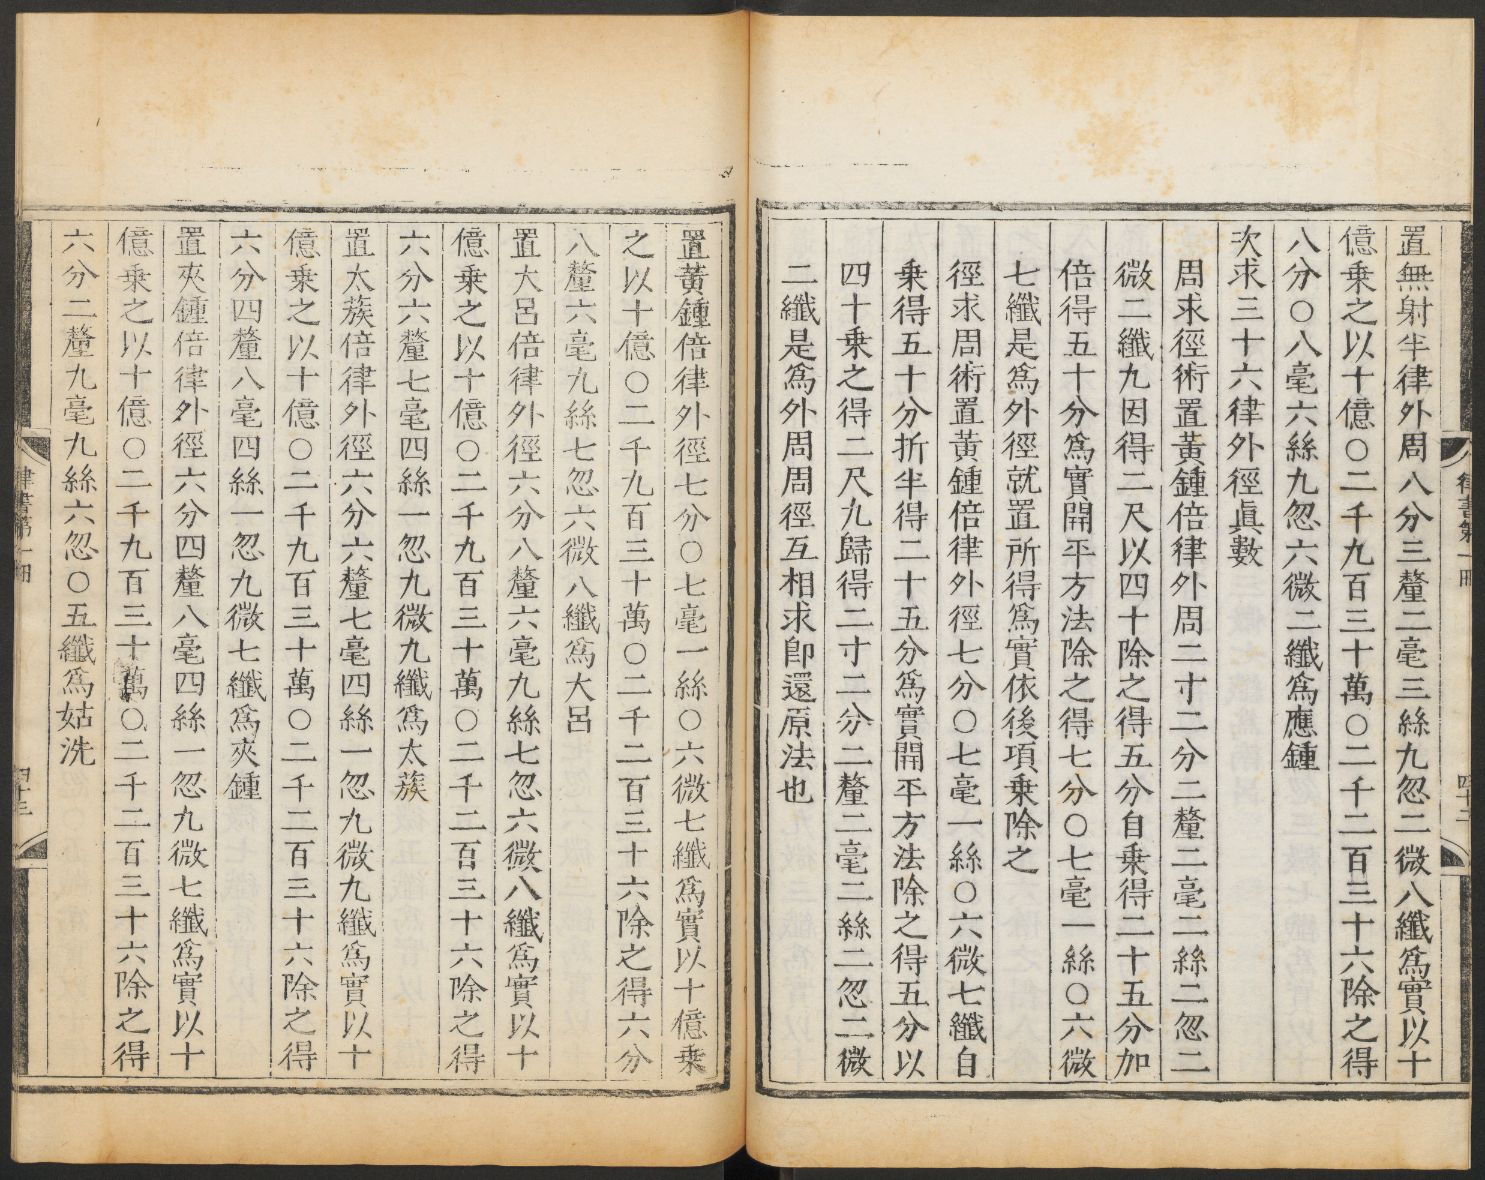 置無射半律外周八分三釐二毫三絲九忽二微八纖爲實以十
億乘之以十億〇二千九百三十萬〇二千二百三十六除之得
八分〇八毫六絲九忽六微二纖爲應鍾
次求三十六律外徑眞數
周求徑術置黃鍾倍律外周二寸二分二釐二毫二絲二忽二
微二纖九因得二尺以四十除之得五分自乘得二十五分加
倍得五十分爲實開平方法除之得七分〇七毫一絲〇六微
七纖是爲外徑就置所得爲實依後項乘除之
徑求周術置黃鍾倍律外徑七分〇七毫一絲〇六微七纖自
乘得五十分折半得二十五分爲實開平方法除之得五分以
四十乘之得二尺九歸得二寸二分二釐二毫二絲二忽二微
二纖是爲外周周徑互相求卽還原法也
律書第一冊
四十二
置黃鍾倍律外徑七分〇七毫一絲〇六微七纖爲實以十億乘
之以十億〇二千九百三十萬〇二千二百三十六除之得六分
八釐六毫九絲七忽六微八纖爲大呂
置大呂倍律外徑六分八釐六毫九絲七忽六微八纖爲實以十
億乘之以十億〇二千九百三十萬〇二千二百三十六除之得
六分六釐七毫四絲一忽九微九纖爲太蔟
置太蔟倍律外徑六分六釐七毫四絲一忽九微九纖爲實以十
億乘之以十億〇二千九百三十萬〇二千二百三十六除之得
六分四釐八毫四絲一忽九微七纖爲夾鍾
置夾鍾倍律外徑六分四釐八毫四絲一忽九微七纖爲實以十
億乘之以十億〇二千九百三十萬〇二千二百三十六除之得
六分二釐九毫九絲六忽〇五纖爲姑洗
律書第一冊
四十三